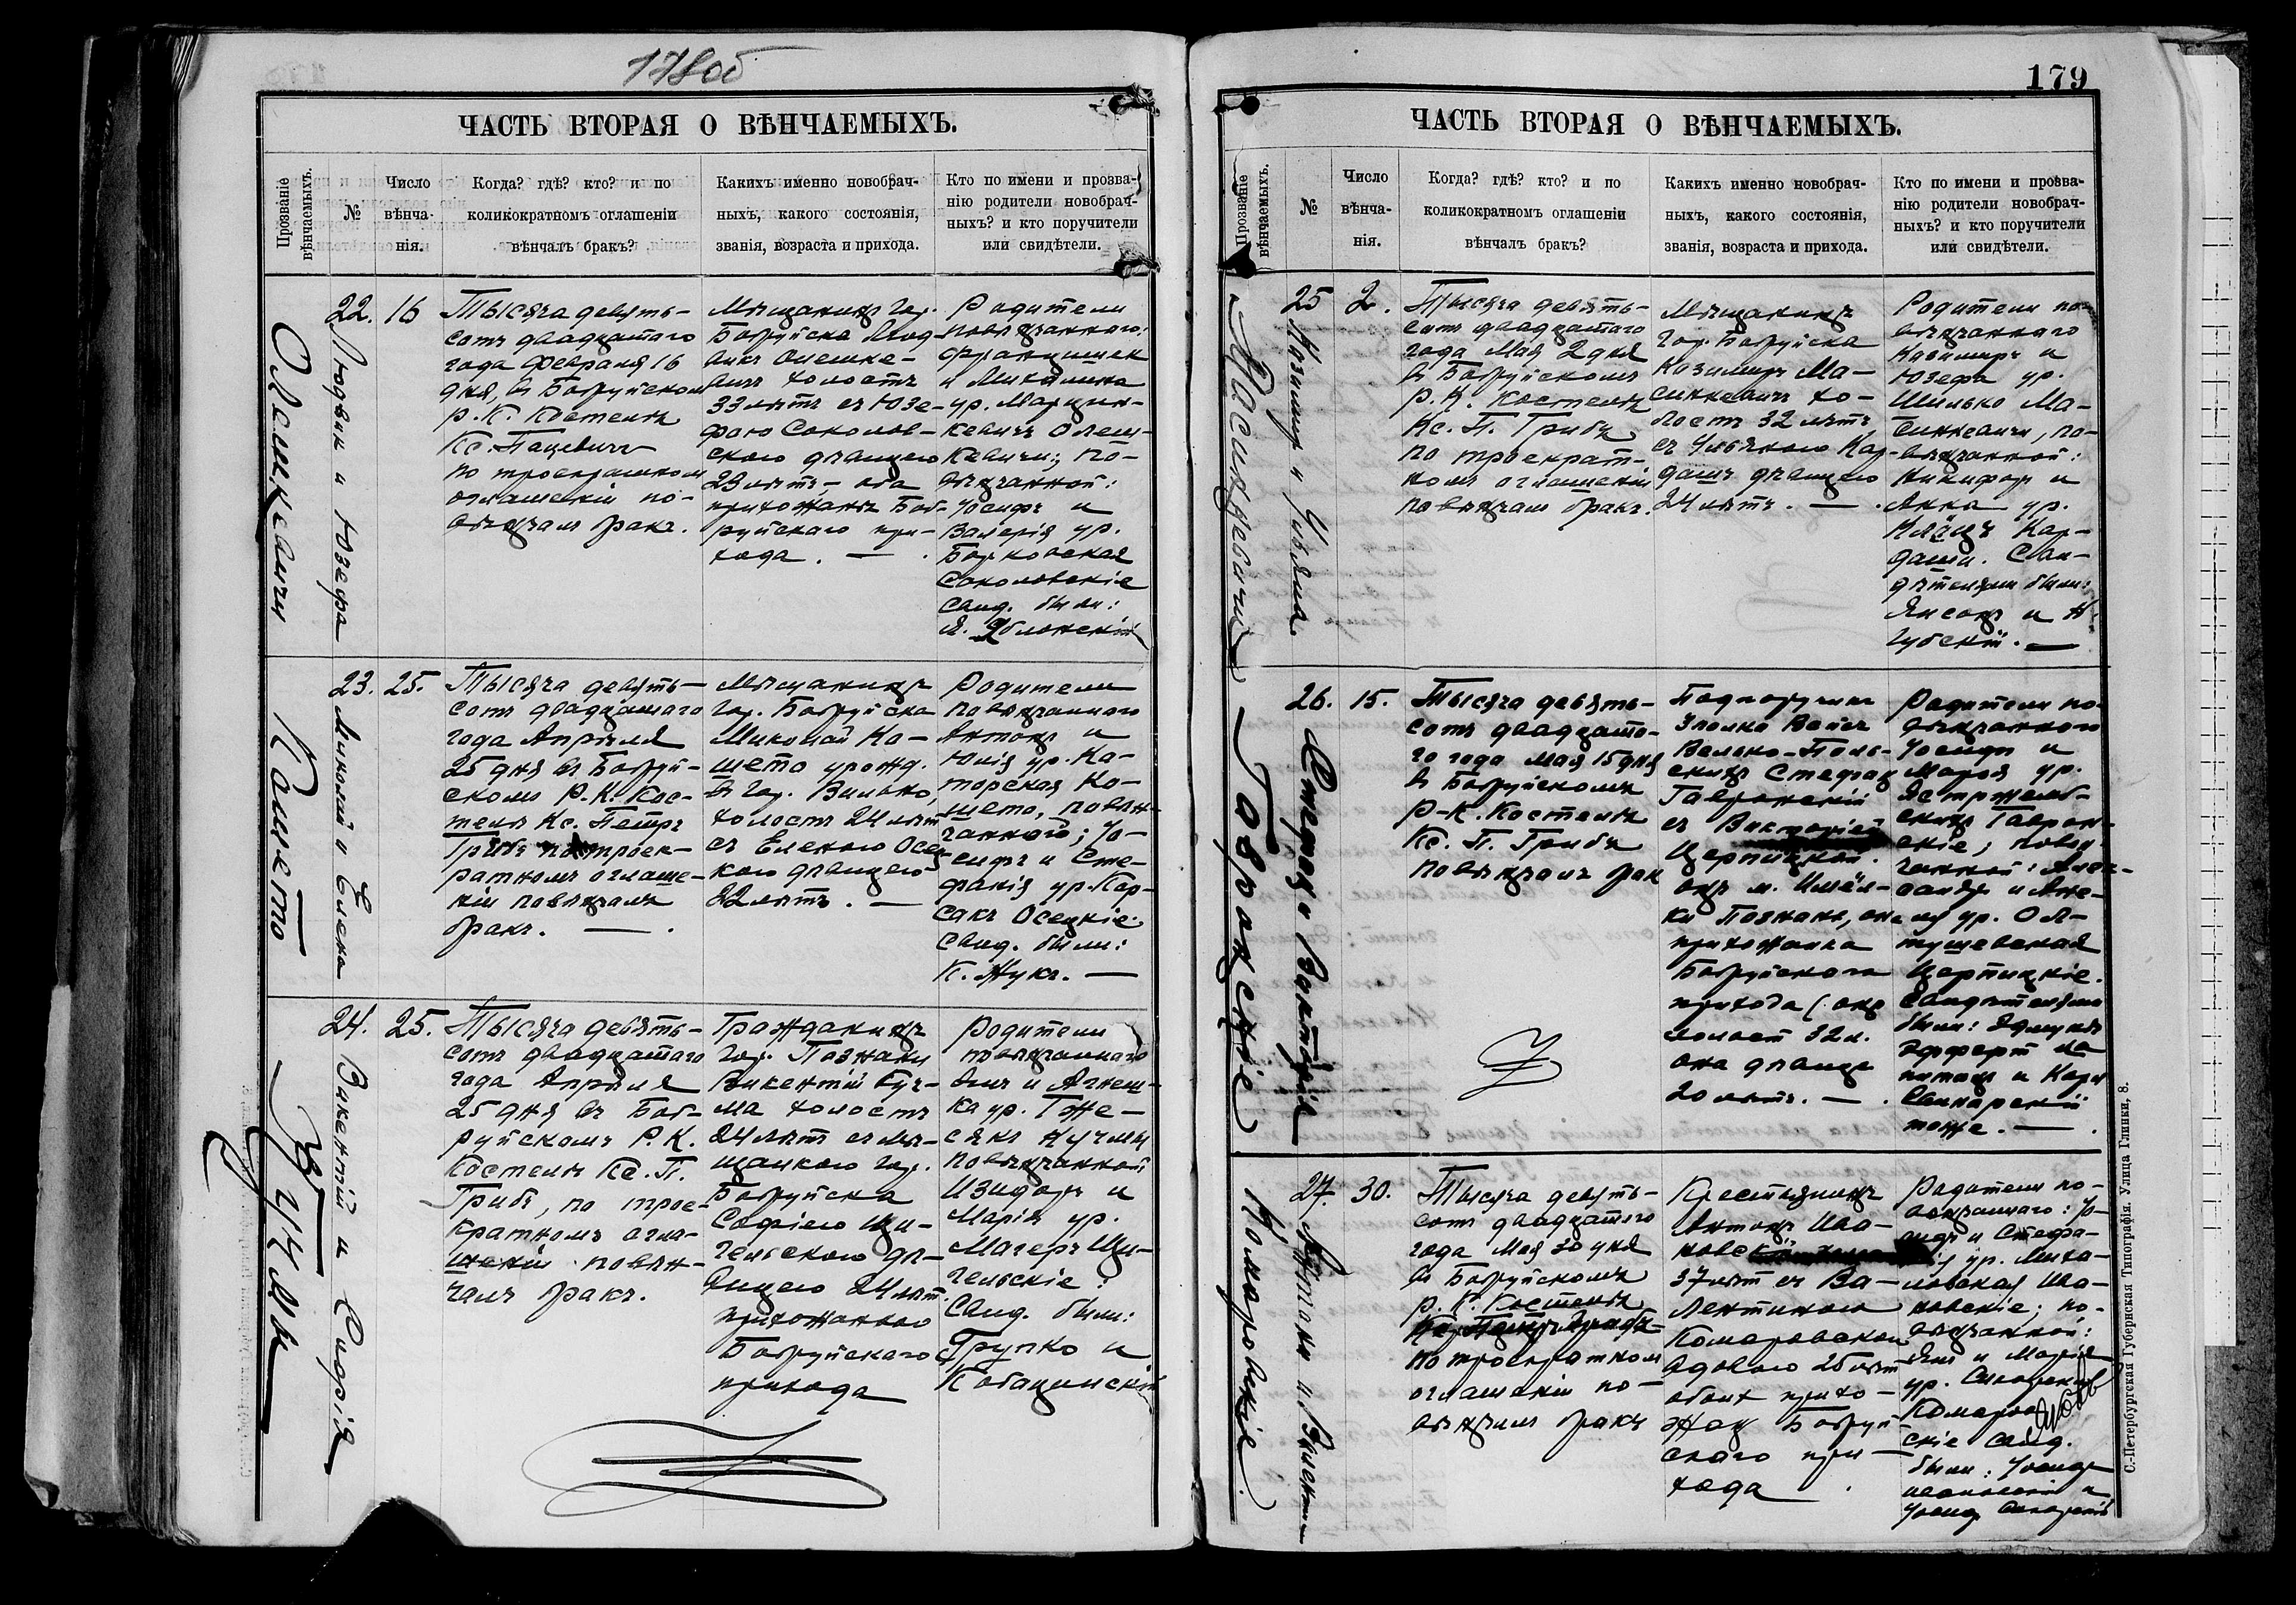 178об
ЧАСТЬ ВТОРАЯ О ВѢНЧАЕМЫХЪ.
Прозваніе вѣнчаемыхъ.
№
Число вѣнча-нія.
Когда? гдѣ? кто? и по
коликократномъ оглашеніи
вѣнчалъ бракъ?
Какихъ именно новобрач-
ныхъ, какого состоянія,
званія, возраста и прихода.
Кто по имени и прозва-
нію родители новобрач-
ныхъ? и кто поручители
или свидѣтели.
Олешкевичи
Людвик и Юзефа
22.
16
Тысяча девять-
сотъ двадцатаго
года Февраля 16
дня, въ Бобруйском
р. К. Костелѣ
Кс. Пацевичъ
по троекратном
оглашеніи по-
вѣнчалъ бракъ.
Мѣщанинъ гор.
Бобруйска Люд-
викъ Олешке-
вичъ холостъ
33 лѣтъ съ Юзе-
фою Соколов-
скою дѣвицею
23 лѣтъ - оба
прихожанъ Боб-
руйскаго при-
хода. —
Родители
повѣнчаннаго:
Францишек
и Михалина
ур. Марцин-
кевичъ Олеш-
кевичи; по-
вѣнчанной:
Іосифъ и
Валерія ур.
Борковская
Соколовскіе
Свид. были:
Я. Яблонскій
Кошето
Миколай и Елена
23.
25.
Тысяча девять-
сотъ двадцатаго
года Апрѣля
25 дня въ Бобруй-
скомъ Р. К. Кос-
телѣ Кс. Петръ
Грибъ по троек-
ратномъ оглаше-
ніи повѣнчалъ
бракъ. —
Мѣщанинъ
гор. Бобруйска
Миколай Ко-
шето урожд.
въ гор. Вильно,
холостъ 24 лѣт
съ Еленою Осец-
кою дѣвицею
22 лѣтъ. —
Родители
повѣнчаннаго
Антонъ и
Юлія ур. Ка-
торская Ко-
шето, повѣн-
чанной; Іо-
сифъ и Сте-
фанія ур. Кор-
сакъ Осецкіе.
Свид. были:
К. Жукъ. —
Кучмы
Викентій и Софія
24.
25.
Тысяча девять-
сотъ двадцатаго
года Апрѣля
25 дня въ Боб-
руйскомъ Р. К.
Костелѣ Кс. П.
Грибъ, по трое-
кратномъ огла-
шеніи повѣн-
чалъ бракъ.
Гражданинъ
гор. Познани
Викентій Куч-
ма холостъ
24 лѣт съ мѣ-
щанкою гор.
Бобруйска
Софіею Щи-
гельскою дѣ-
вицею 24 лѣт.
прихожанкою
Бобруйскаго
прихода
Родители
повѣнчаннаго
Янъ и Агнеш-
ка ур. Гже-
сякъ Кучмы
повѣнчанной
Изидоръ и
Марія ур.
Магеръ Щи-
гельскіе:
Свид. были:
Групко и
179
ЧАСТЬ ВТОРАЯ О ВѢНЧАЕМЫХЪ.
Прозваніе вѣнчаемыхъ.
№
Число вѣнча-нія.
Когда? гдѣ? кто? и по
коликократномъ оглашеніи
вѣнчалъ бракъ?
Какихъ именно новобрач-
ныхъ, какого состоянія,
званія, возраста и прихода.
Кто по имени и прозва-
нію родители новобрач-
ныхъ? и кто поручители
или свидѣтели.
Казимиръ и Ульяна
25
2.
Тысяча девять-
сотъ двадцатаго
года Мая 2 дня
въ Бобруйскомъ
р. К. Костелѣ
Кс. П. Грибъ
по троекрат-
номъ оглашеніи
повѣнчалъ бракъ.
Мѣщанинъ
гор. Бобруйска
Казимиръ Ма-
синкевичъ хо-
лостъ 32 лѣтъ
съ Ульяною Кар-
дашъ дѣвицею
24 лѣтъ. —
Родители по-
вѣнчаннаго
Казимиръ и
Юзефа ур.
Шилько Ма-
синкевичи, по-
вѣнчанной:
Никифоръ и
Анна ур.
Кардаши. Сви-
дѣтелями были:
Гавронскіе
Стефанъ и Викторія
26.
15.
Тысяча девять-
сотъ двадцато-
го года Мая 15 дня
въ Бобруйскомъ
р-К. Костелѣ
Кс. П. Грибъ
повѣнчалъ брак
Подпоручикъ
Велико-Поль-
скихъ Стефанъ
Гавронскій
съ Викторіею
Церпицкой.
онъ м.
Познань, она
прихожанка
Бобруйскаго
прихода (онъ
холост 32 л.
она дѣвица
20 лѣтъ. —
Родители по-
вѣнчаннаго
Іосифъ и
Марія ур.
Ястржемб-
скихъ Гаврон-
скіе; повѣн-
чанной: Алек-
сандръ и Ане-
ля ур.
Церпицкіе.
Свидѣтелями
были: Эдмундъ
тоже. —
Комаровскіе
Антонъ и Валентина
27.
30.
Тысяча девять-
сотъ двадцатаго
года Мая 30 дня
въ Бобруйскомъ
р. К. Костелѣ
Кс. Петръ Грибъ
по троекратном
оглашеніи по-
вѣнчалъ бракъ
Крестьянинъ
Антонъ Ива-
37 лѣт съ Ва-
лентиною
Комаровскою
вдовою 25 лѣт
обоих прихо-
жан Бобруй-
скаго при-
хода.
Родители по-
вѣнчаннаго: Іо-
сифъ и Стефа-
нія ур. Миха-
ловская Ива-
новскіе; по-
вѣнчанной:
Янъ и Марія
скіе Свид.
были: Іосифъ
С.-Петербургская Губернская Типографія. Улица Глинки, 8.